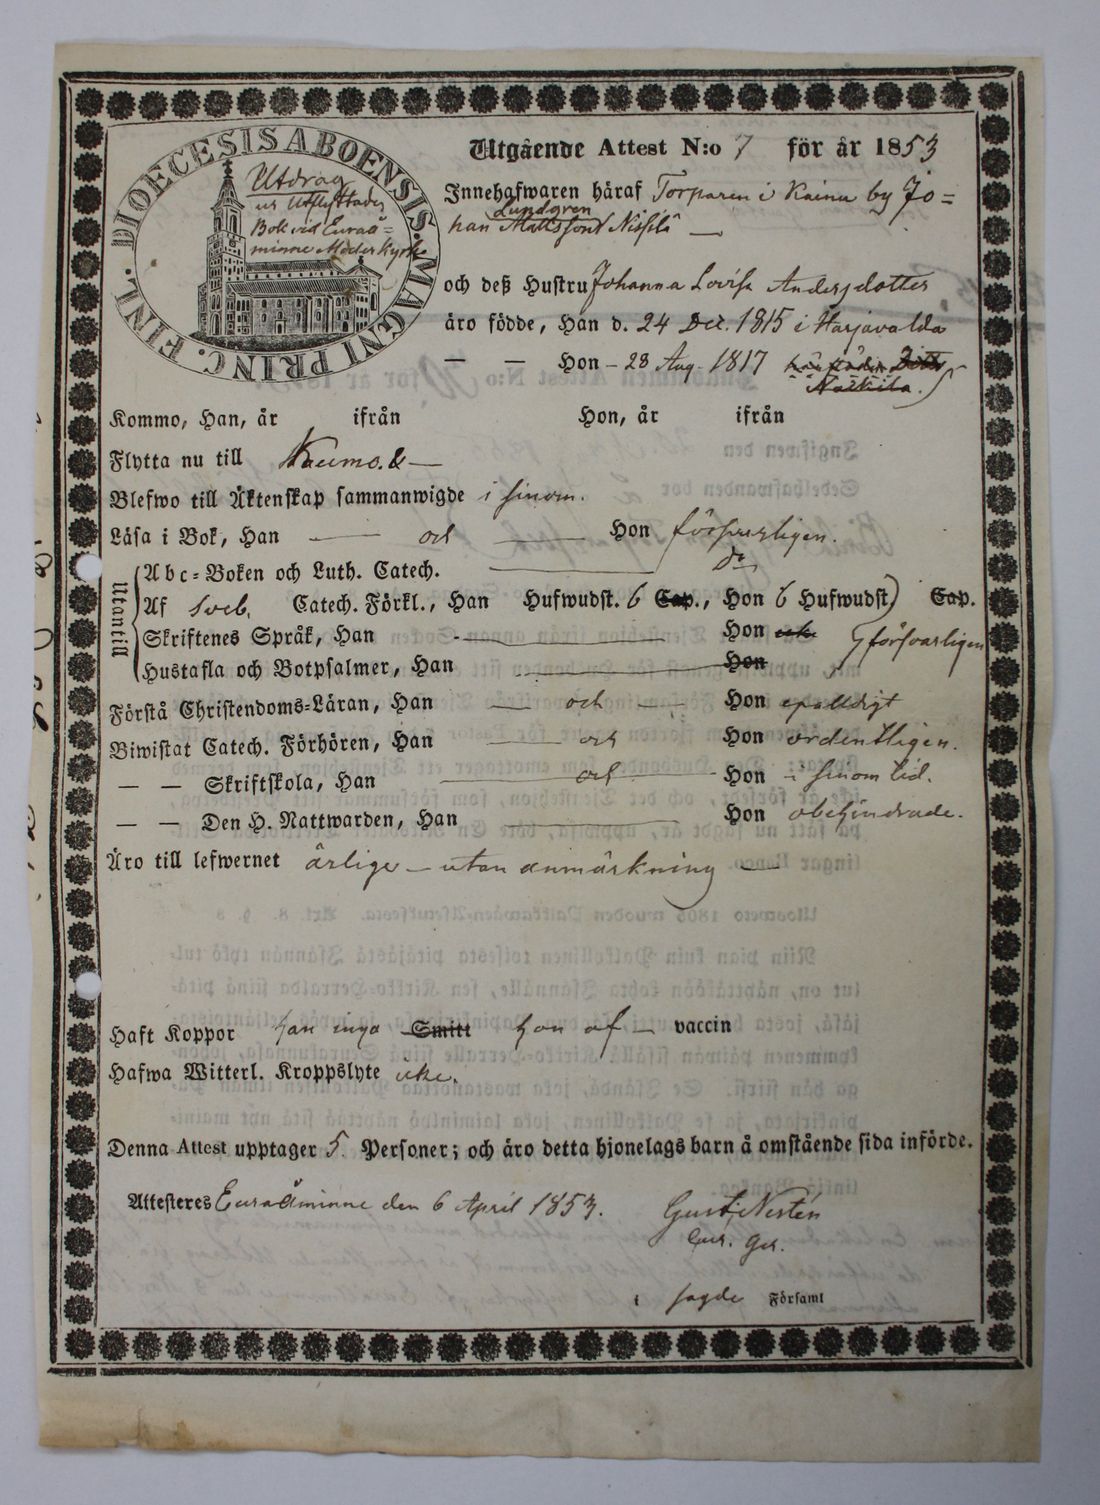 DIOECESIS ABOENSIS. MAGNI PRINC. FINL.
Utdrag
ur Utflyttades
Bok vid Euraå=
minne Moderkyrka
Utgående Attest N:o 7 för år 1853
Innehafwaren häraf Torparen i Kainu by Jo=
Lundgren
han Mattsson Nissilä —
och deß Hustru Johanna Lovisa Andersdotter
äro födde, Han d. 24 Dec. 1815 i Harjavalda
— — Hon – 28 Aug. 1817
Nackila.
Kommo, Han, år ifrån Hon, år ifrån
Flytta nu till Kumo. —
Blefwo till Äktenskap sammanwigde i sinom.
Läsa i Bok, Han — och — Hon försvarligen.
Utantill
Abc-Boken och Luth. Catech. — do
Af Sveb. Catech. Förkl., Han Hufwudst. 6 Cap., Hon 6 Hufwudst) Cap.
Skriftenes Språk, Han — Hon försvarligen
Hustafla och Botpsalmer, Han — Hon
Förstå Christendoms-Läran, Han — och — Hon
Biwistat Catech. Förhören, Han — och Hon ordentligen.
— — Skriftskola, Han — och — Hon i sinom tid.
— — Den H. Nattwarden, Han — Hon obehindrade.
Äro till lefwernet ärlige — utan anmärkning —
Haft Koppor han inga Smitt hon af — vaccin
Hafwa Witterl. Kroppslyte icke.
Denna Attest upptager 5. Personer; och äro detta hjonelags barn å omstående sida införde.
Attesteres Euraåminne den 6 April 1853. Gust. Nestén
i sagde Församl